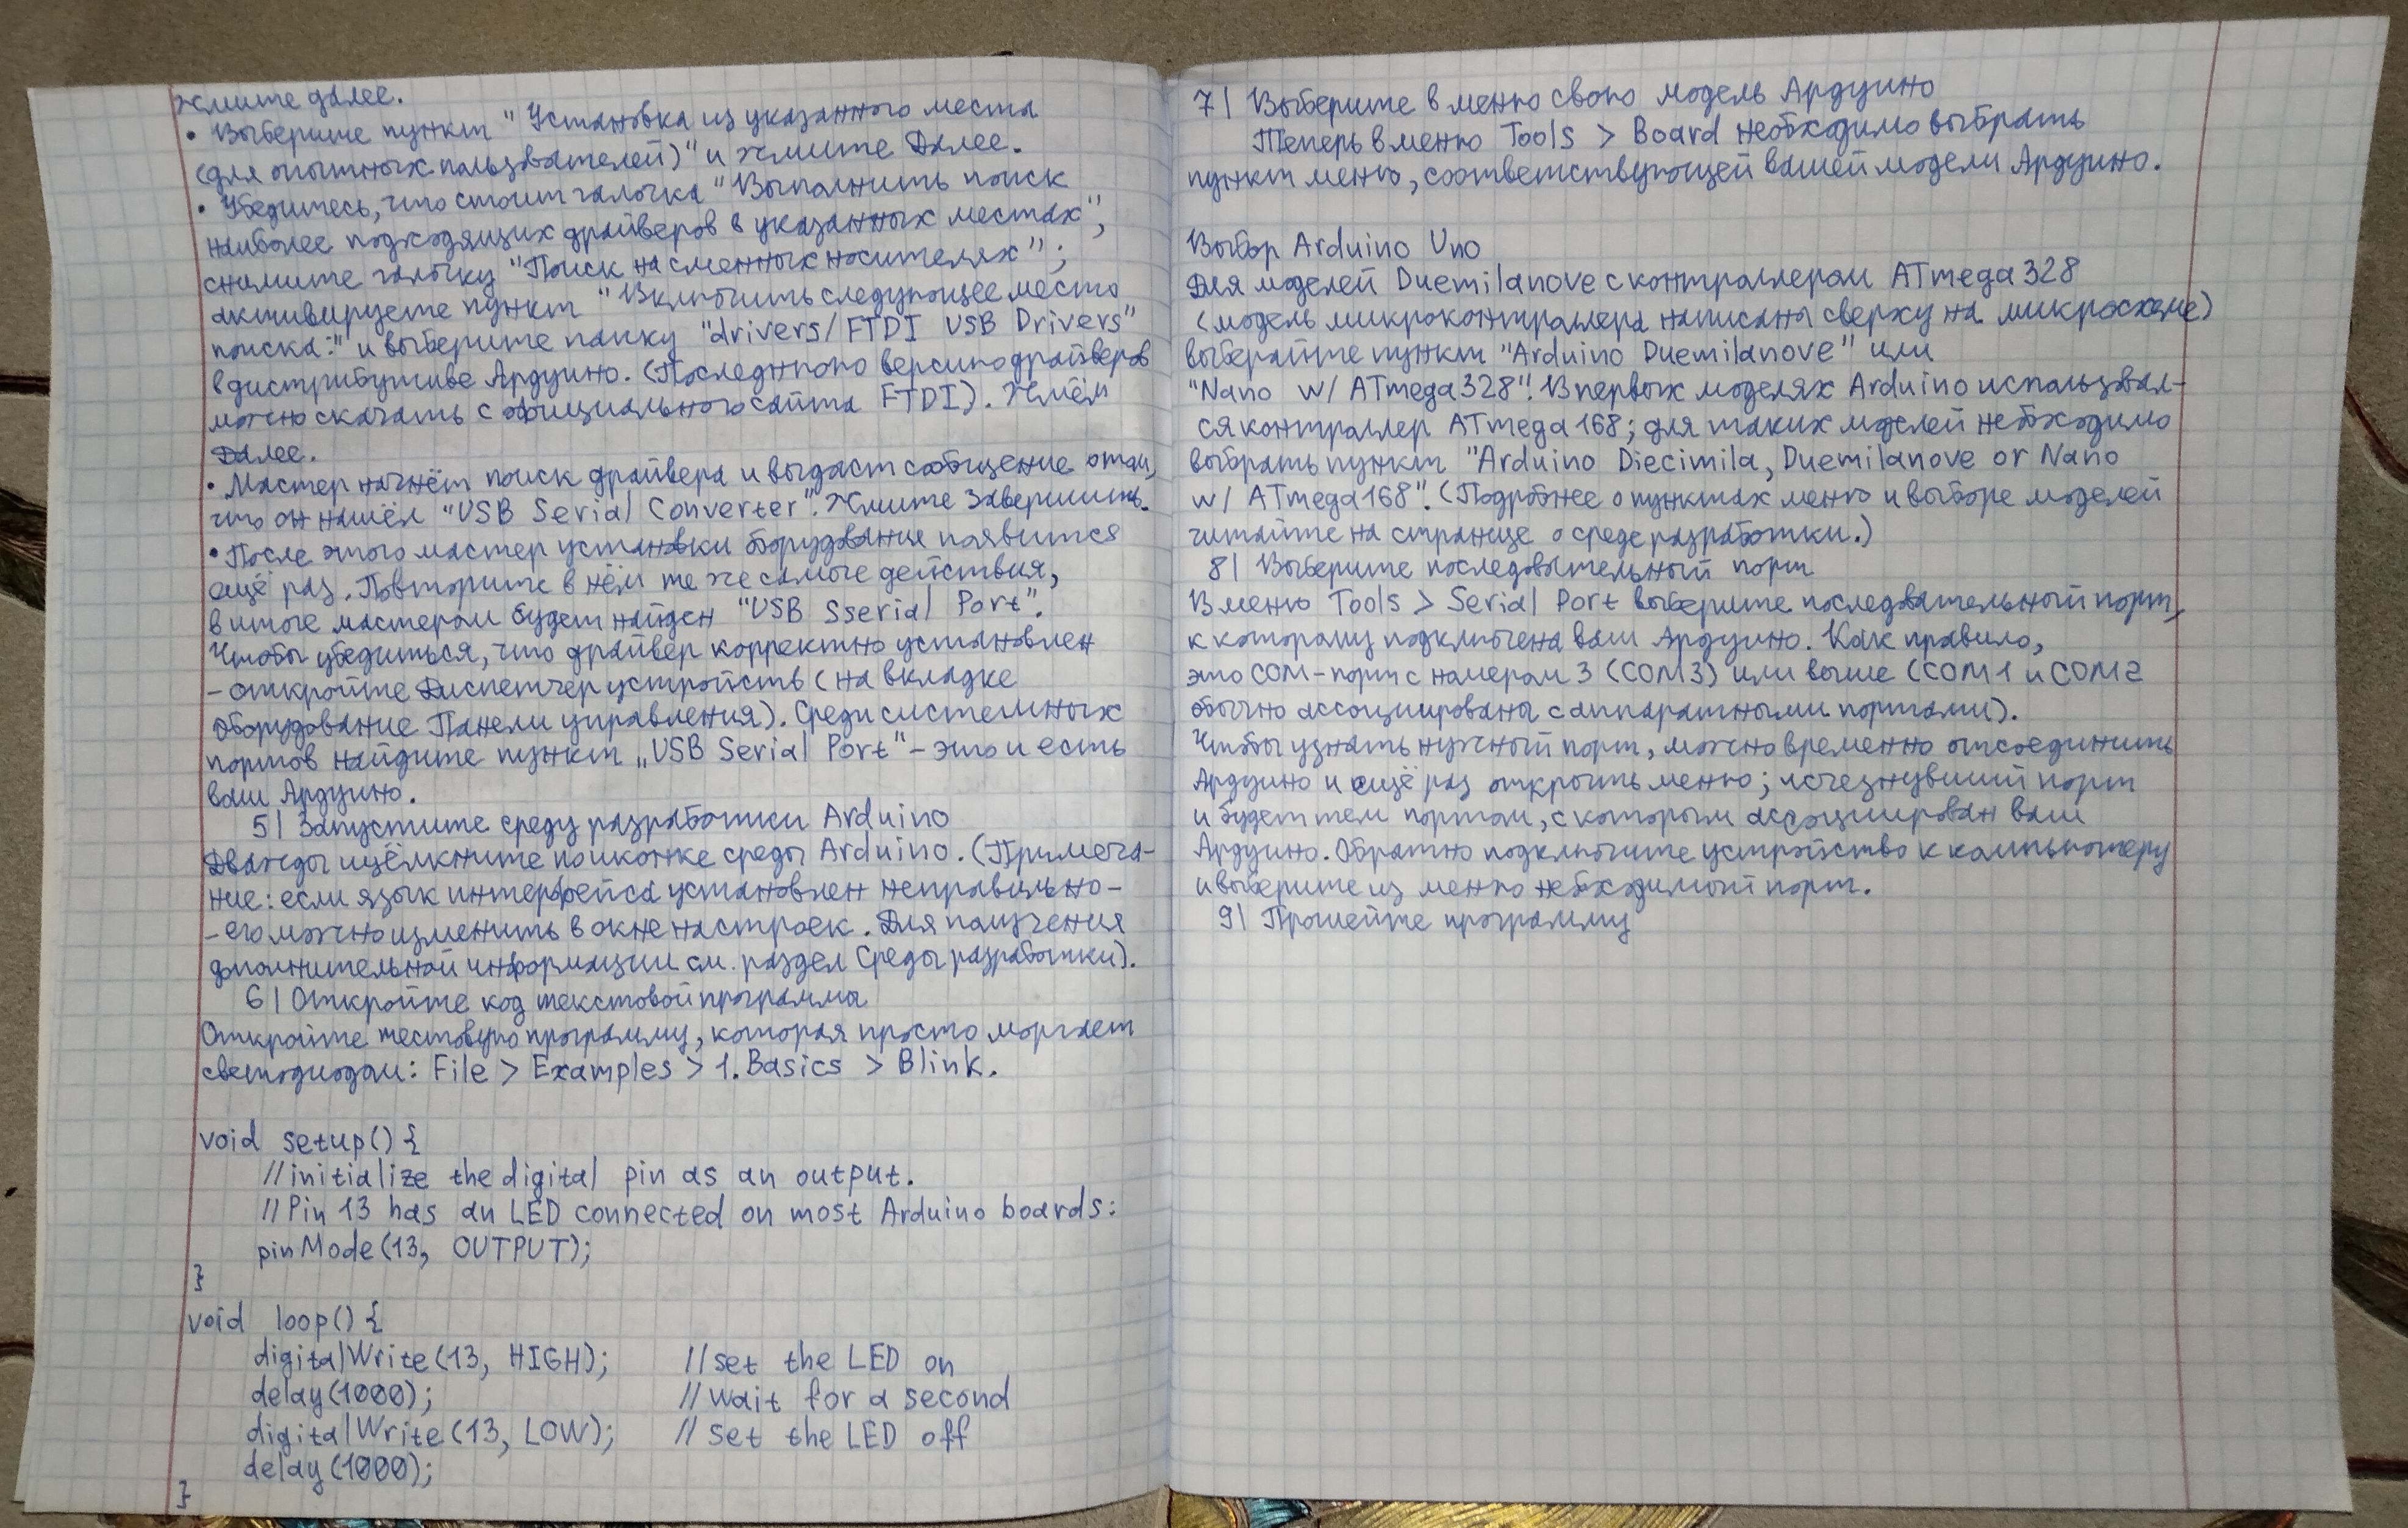 жмите далее.
• Выберите пункт "Установка из указанного места
(для опытных пользователей)" и жмите Далее.
• Убедитесь, что стоит галочка "Выполнить поиск
наиболее подходящих драйверов в указанных местах";
снимите галочку "Поиск на сменных носителях";
активируете пункт "Включить следующее место
поиска:" и выберите папку "drivers/FTDI USB Drivers"
в дистрибутиве Ардуино. (Последнюю версию драйверов
можно скачать с официального сайта FTDI). Жмём
Далее.
• Мастер начнёт поиск драйвера и выдаст сообщение о том,
что он нашёл "USB Serial Converter". Жмите Завершить.
• После этого мастер установки оборудования появится
ещё раз. Повторите в нём те же самые действия,
в итоге мастером будет найден "USB Sserial Port".
Чтобы убедиться, что драйвер корректно установлен
– откройте Диспетчер устройсть (на вкладке
Оборудование Панели управления). Среди системных
портов найдите пункт „USB Serial Port" – это и есть
ваш Ардуино.
5| Запустите среду разработки Arduino
Дважды щёлкните по иконке среды Arduino. (Примеча-
ние: если язык интерфейса установлен неправильно –
– его можно изменить в окне настроек. Для получения
дополнительной информации см. раздел Среды разработки).
6| Откройте код текстовой программы
Откройте тестовую программу, которая просто моргает
светодиодом: File > Examples > 1. Basics > Blink.
void setup() {
//initialize the digital pin as an output.
//Pin 13 has an LED connected on most Arduino boards:
pinMode(13, OUTPUT);
}
void loop() {
digitalWrite(13, HIGH); //set the LED on
delay(1000); //wait for a second
digitalWrite(13, LOW); //set the LED off
delay(1000);
}
7| Выберите в меню свою модель Ардуино
Теперь в меню Tools > Board необходимо выбрать
пункт меню, соответствующей вашей модели Ардуино.
Выбор Arduino Uno
Для моделей Duemilanove с контроллером ATmega328
(модель микроконтроллера написаны сверху на микросхеме)
выберайте пункт "Arduino Duemilanove" или
"Nano w/ ATmega328". В первых моделях Arduino использовал-
ся контроллер ATmega168; для таких моделей необходимо
выбрать пункт "Arduino Diecimila, Duemilanove or Nano
w/ ATmega168". (Подробнее о пунктах меню и выборе моделей
читайте на странице о среде разработки.)
8| Выберите последовательный порт
В меню Tools > Serial Port выберите последовательный порт,
к которому подключена ваш Ардуино. Как правило,
это COM-порт с номером 3 (COM3) или выше (COM1 и COM2
обычно ассоциированы с аппаратными портами).
Чтобы узнать нужный порт, можно временно отсоединить
Ардуино и ещё раз открыть меню; исчезнувший порт
и будет тем портом, с которым ассоциирован ваш
Ардуино. Обратно подключите устройство к компьютеру
и выберите из меню необходимый порт.
9| Прошейте программу